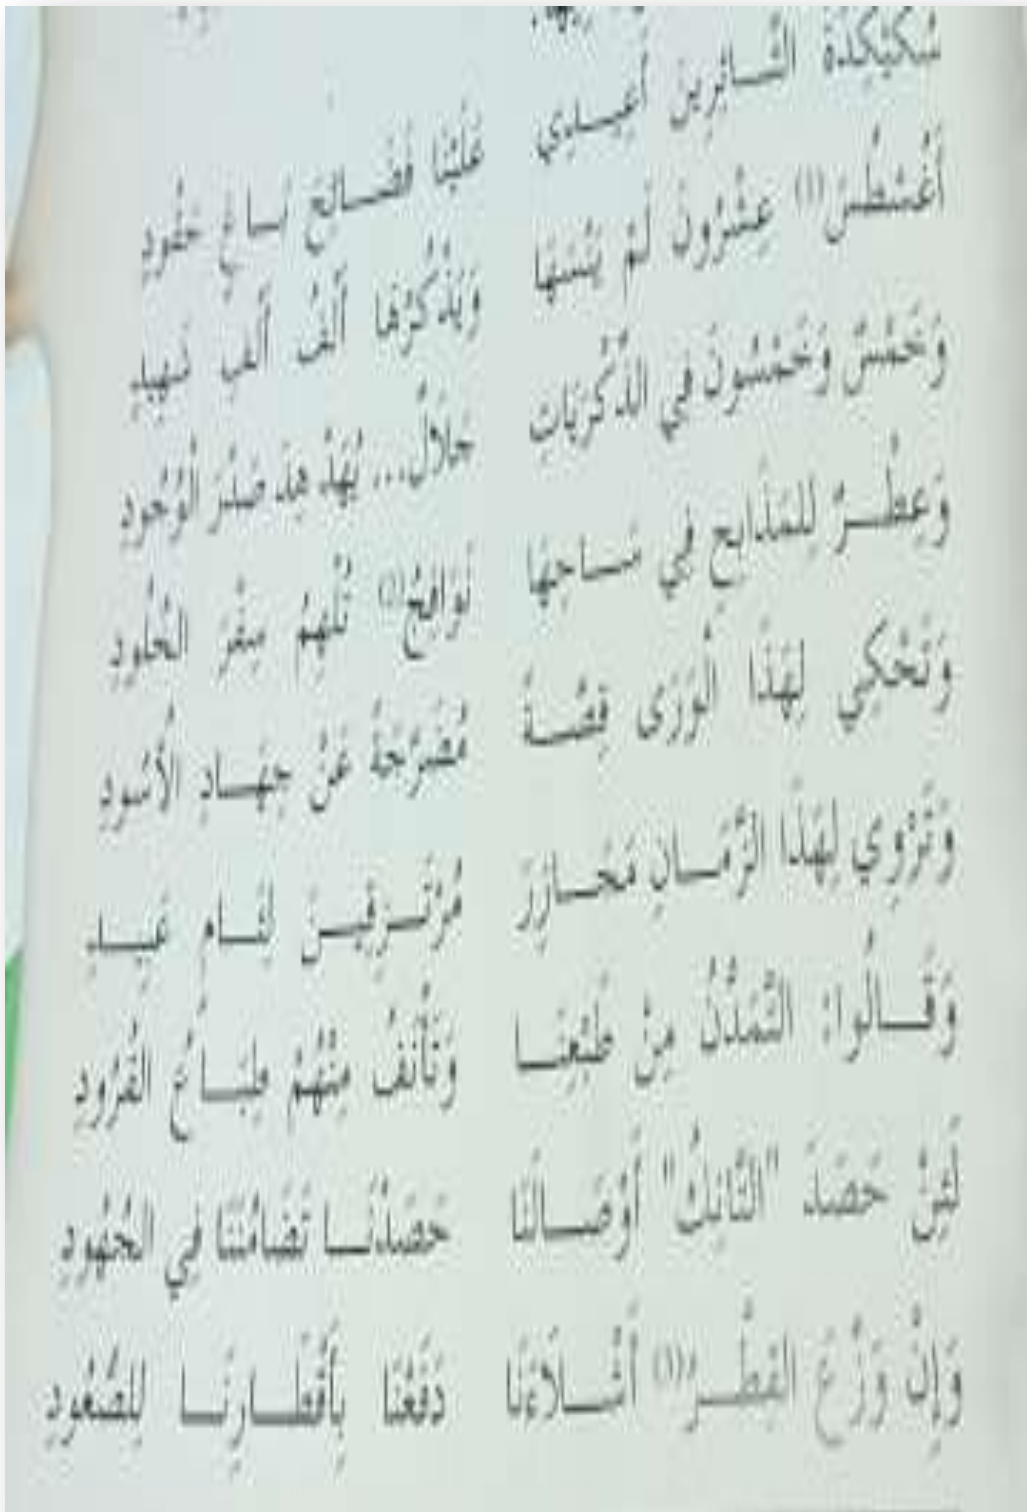 سُكَيْكِدَةَ الثَّـائِرِينَ أَعِيـدِي عَلَيْنَا فَضَـائِحَ بَـاغٍ حَقُودِ
أُغُسْطُسُ(1) عِشْرُونَ لَمْ يَنْسَهَا وَيَذْكُرُهَا أَلْفُ أَلْفِ شَهِيدِ
وَخَمْسٌ وَخَمْسُونَ فِي الذِّكْرَيَاتِ جَلاَلٌ... يُهَدْهِدُ صَدْرَ الْوُجُودِ
وَعِطْـرٌ لِلمَذَابِحِ فِي سَـاحِهَا نَوَافِجُ(2) تُلْهِمُ سِفْرَ الخُلُودِ
وَتَحْكِي لِهَذَا الْوَرَى قِصَّـةً مُضَرَّجَةً عَنْ جِهَـادِ الأُسُودِ
وَتَرْوِي لِهَذَا الزَّمَـانِ مَجَـازِرَ مُرْتَـزِقِيـنَ لِئَـامٍ عَبِيـدِ
وَقَـالُوا: التَّمَدُّنُ مِنْ طَبْعِنَـا وَتَأْنَفُ مِنْهُمْ طِبَـاعُ القُرُودِ
لَئِنْ حَصَدَ "التَّانِكُ" أَوْصَـالَنَا حَصَدْنَـا تَضَامُنَنَا فِي الجُهُودِ
وَإِنْ وَزَّعَ القِطْـرُ(1) أَشْـلاَءَنَا دَفَعْنَا بِأَقْطَـارِنَـا لِلصُّعُودِ